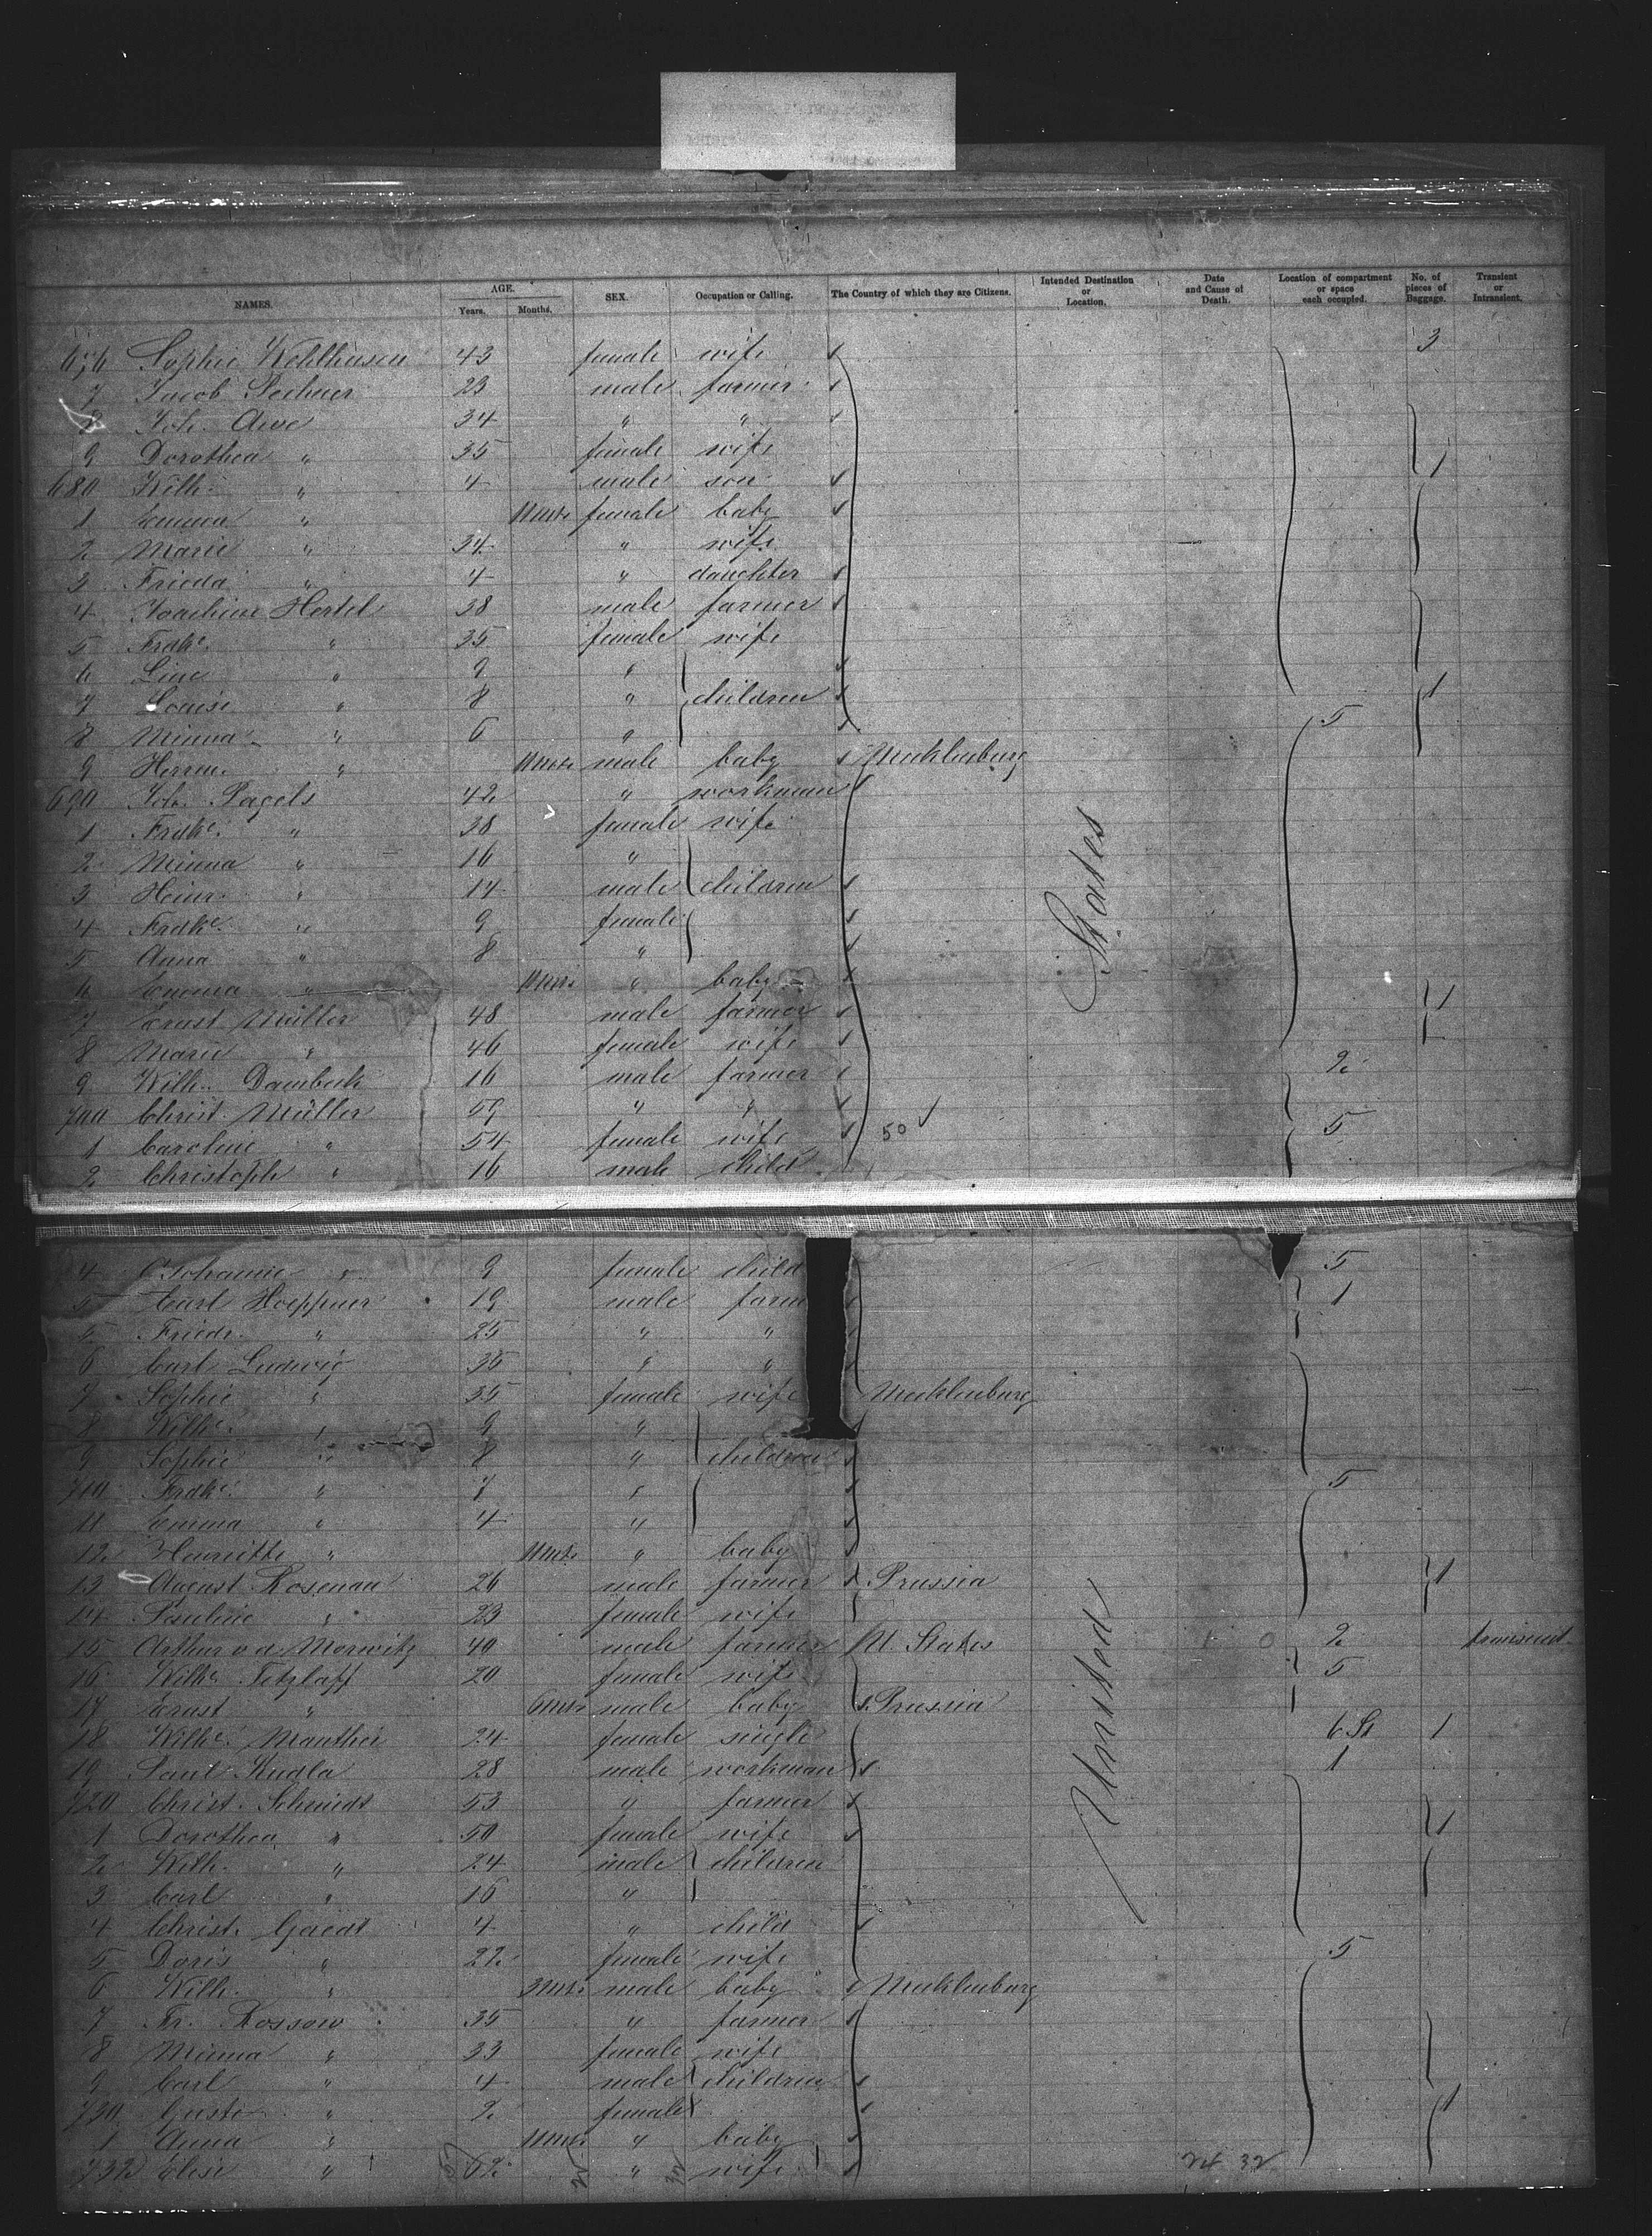 NAMES. AGE. Years. Months. SEX. Occupation or Calling. The Country of which they are Citizens. Intended Destination or Location. Date and Cause of Death. Location of compartment or space each occupied. No. of pieces of Baggage. Transient or Intransient.
676 Sophie 43 female wife 3
7 Jacob 23 male farmer
8 Joh. 34 " "
9 Dorothea " 35 female wife 1
680 Wilh. " 4 male son
1 Emma " 11 mts. female baby
2 Marie " 34 " wife
3 Frieda " 4 " daughter
4 Joachim Hertel 38 male farmer
5 Frdke. " 35 female wife
6 Line " 9 "
7 Louise " 8 " children 1
8 Minna " 6 " 5
9 Herm. " male baby Mecklenburg
690 Joh. Pagels 42 " workman
1 Frdke. " 38 female wife
2 Minna " 16 "
3 Heinr. " 14 male children
4 Frdke. " 9 female
5 Anna " 8 "
6 Emma " " baby
7 Ernst Müller 48 male farmer 1
8 Marie " 46 female wife
9 Wilh. Dambeck 16 male farmer 2
700 Christ. Müller 59 " "
1 Caroline " 54 female wife 50 5
2 Christoph " 16 male child
States
4 Johanna " 9 female child 5
5 Carl Hoeppner 19 male farm 1
5 Friedr. " 25 " "
6 Carl Ludwig 35 " "
7 Sophie " 35 female wife Mecklenburg
8 Wilhe. " 9 "
9 Sophie " 8 " children
710 Frdke. " 7 " 5
11 Emma " 4 "
12 Henriette " 11 mts. " baby
13 August Rosenau 26 male farmer Prussia 1
14 Pauline " 23 female wife
15 Arthur v d Morwitz 40 male farmer U. States 2 transient
16 Wilhe. Tetzlaff 20 female wife 5
17 Ernst " 6 mts. male baby Prussia
18 Wilhe. Manthei 24 female single 6 St 1
19 Paul Kudla 28 male workman 1
720 Christ. Schmidt 53 " farmer
1 Dorothea " 50 female wife 1
2 Wilh. " 24 male children
3 Carl " 16 "
4 Christ. Gaedt 4 " child
5 Doris " 22 female wife 5
6 Wilh. " 3 mts. male baby Mecklenburg
7 Fr. Kossow 35 " farmer
8 Minna " 33 female wife
9 Carl " 4 male children
730 Guste " 2 female 1
1 Anna " " baby
732 Elise " 62 " wife 24 32
United